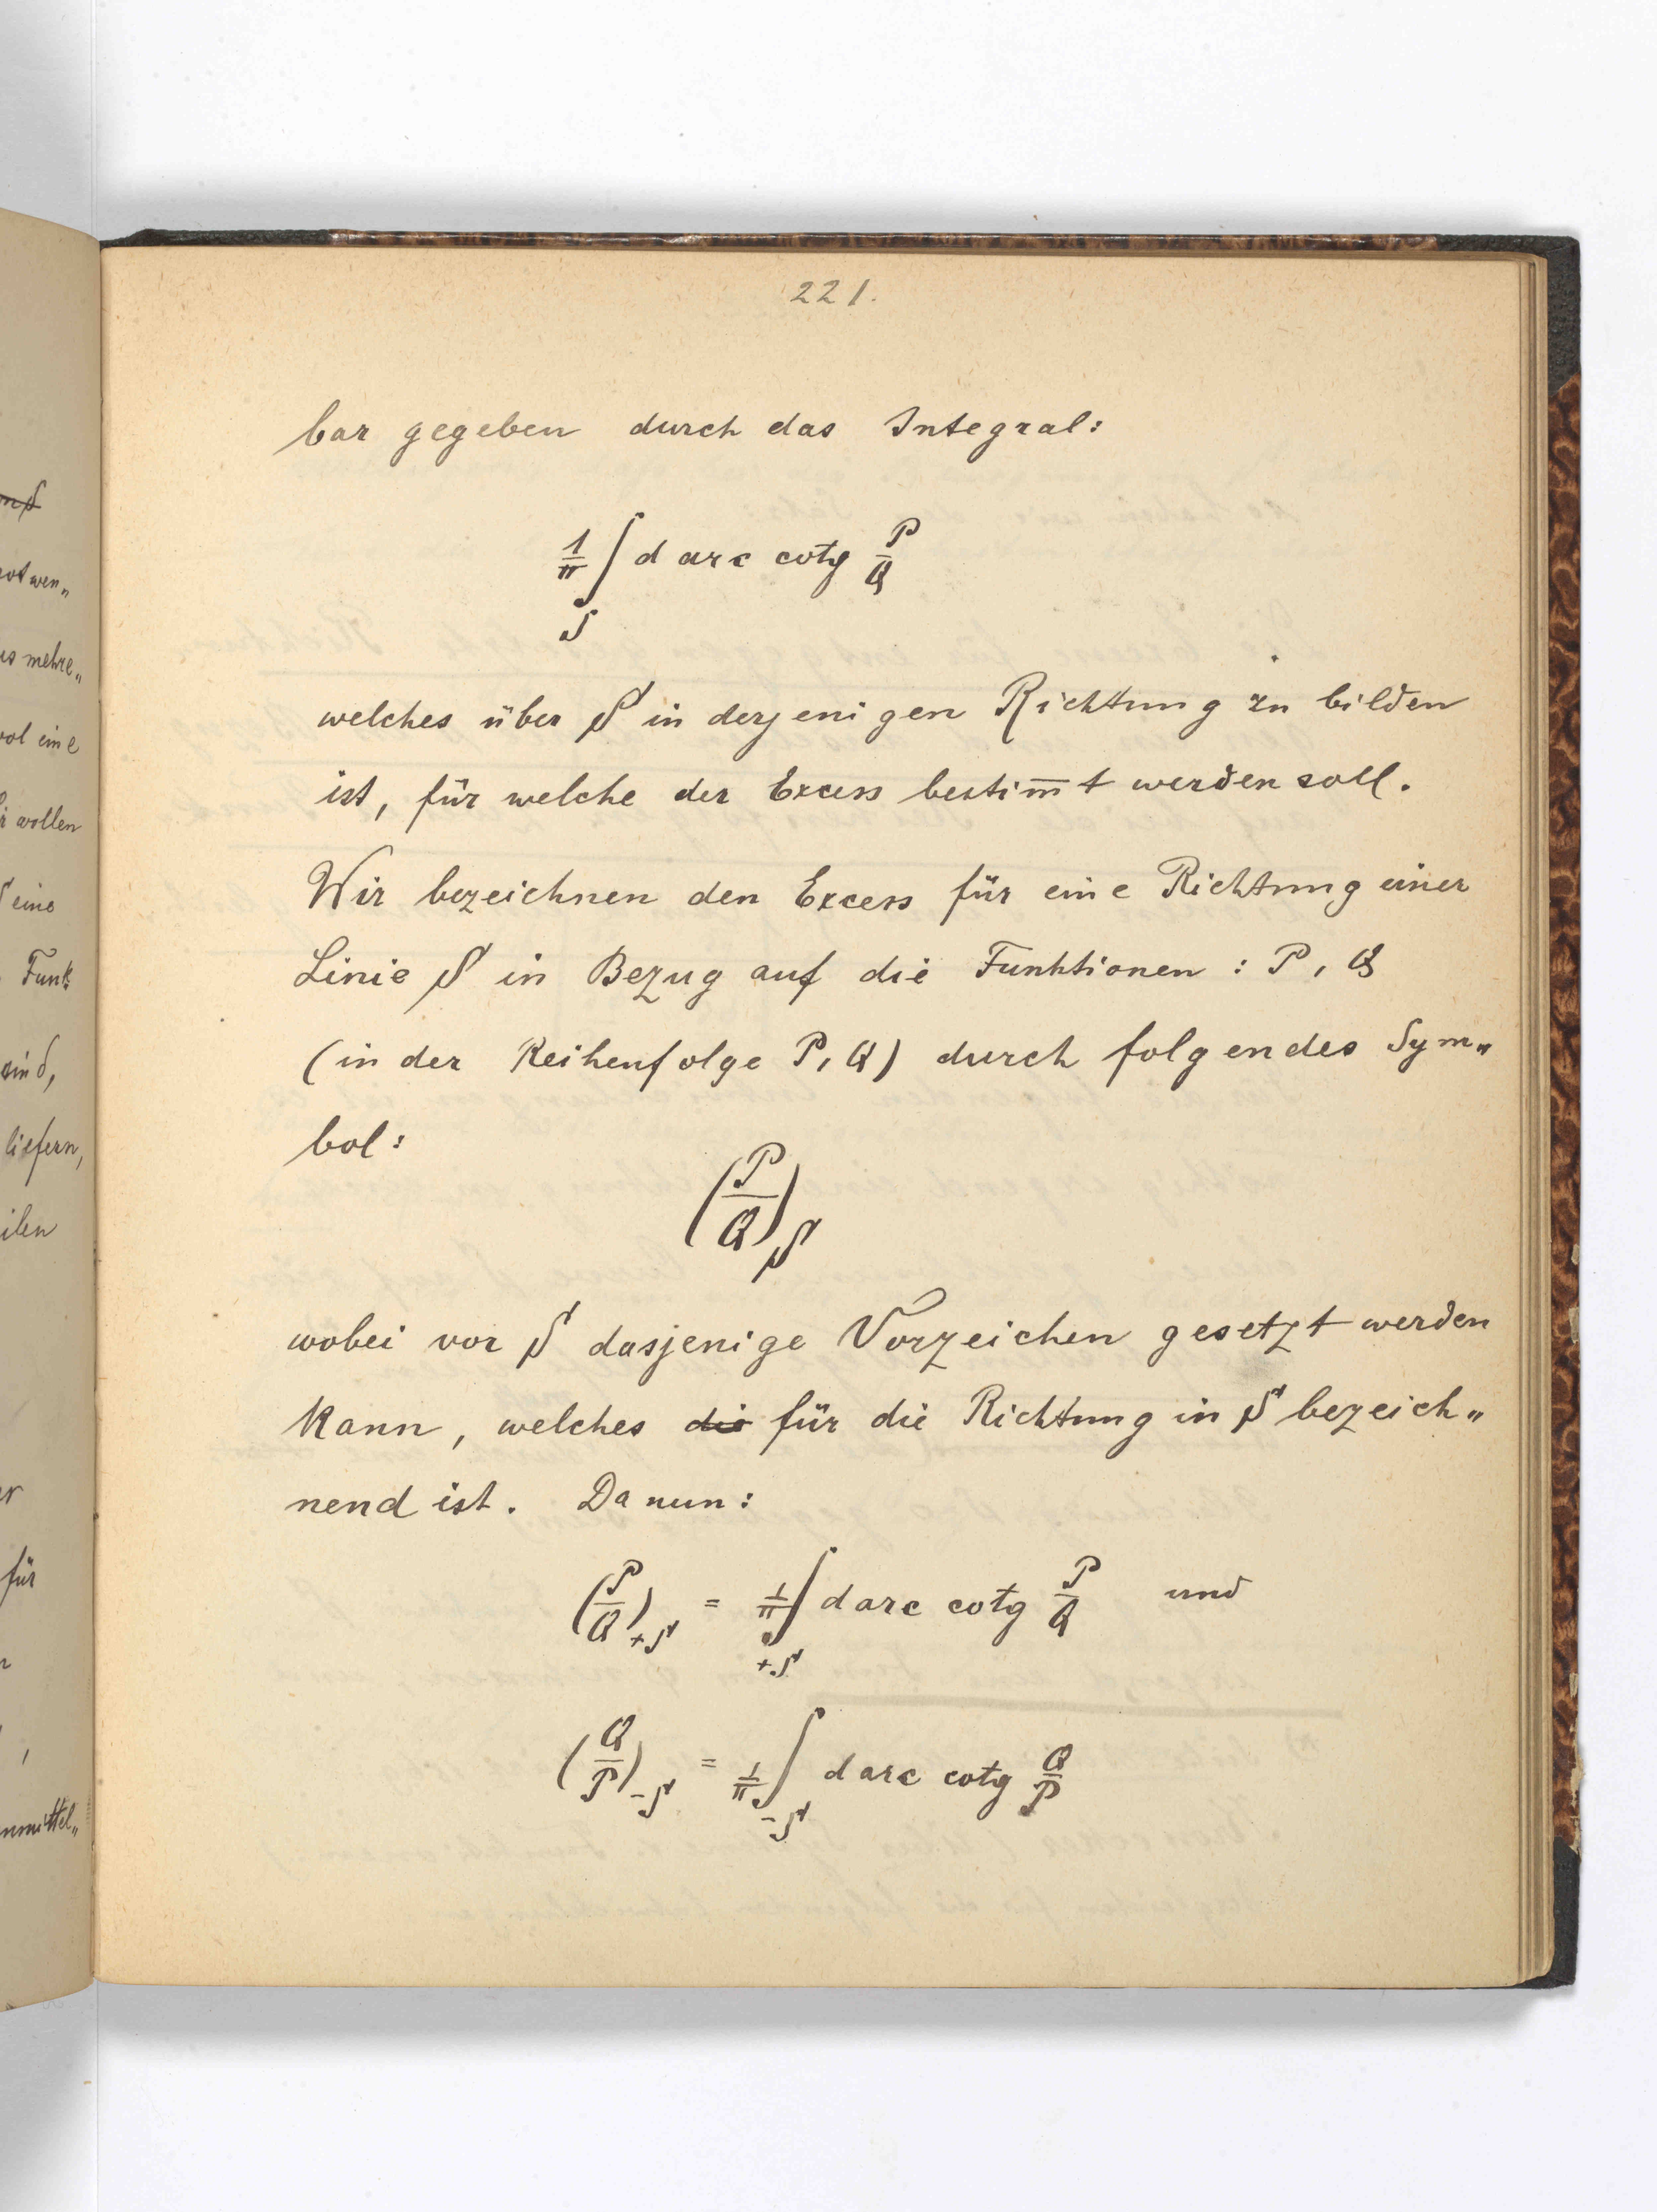 221.
bar gegeben durch das Integral:
1/π ∫_S d arc cotg P/Q
welches über S in derjenigen Richtung zu bilden
ist, für welche der Excess bestim̅t werden soll.
Wir bezeichnen den Excess für eine Richtung einer
Linie S in Bezug auf die Funktionen : P, Q
(in der Reihenfolge P, Q) durch folgendes Sym„
bol:
(P/Q)_S
wobei vor S dasjenige Vorzeichen gesetzt werden
kann, welches die für die Richtung in S bezeich„
nend ist. Da nun:
(P/Q)_{+S} = 1/π ∫_{+S} d arc cotg P/Q und
(Q/P)_{-S} = 1/π ∫_{-S} d arc cotg Q/P
mehre„
eine
wollen
eine
Funk„
sind,
liefern,
für